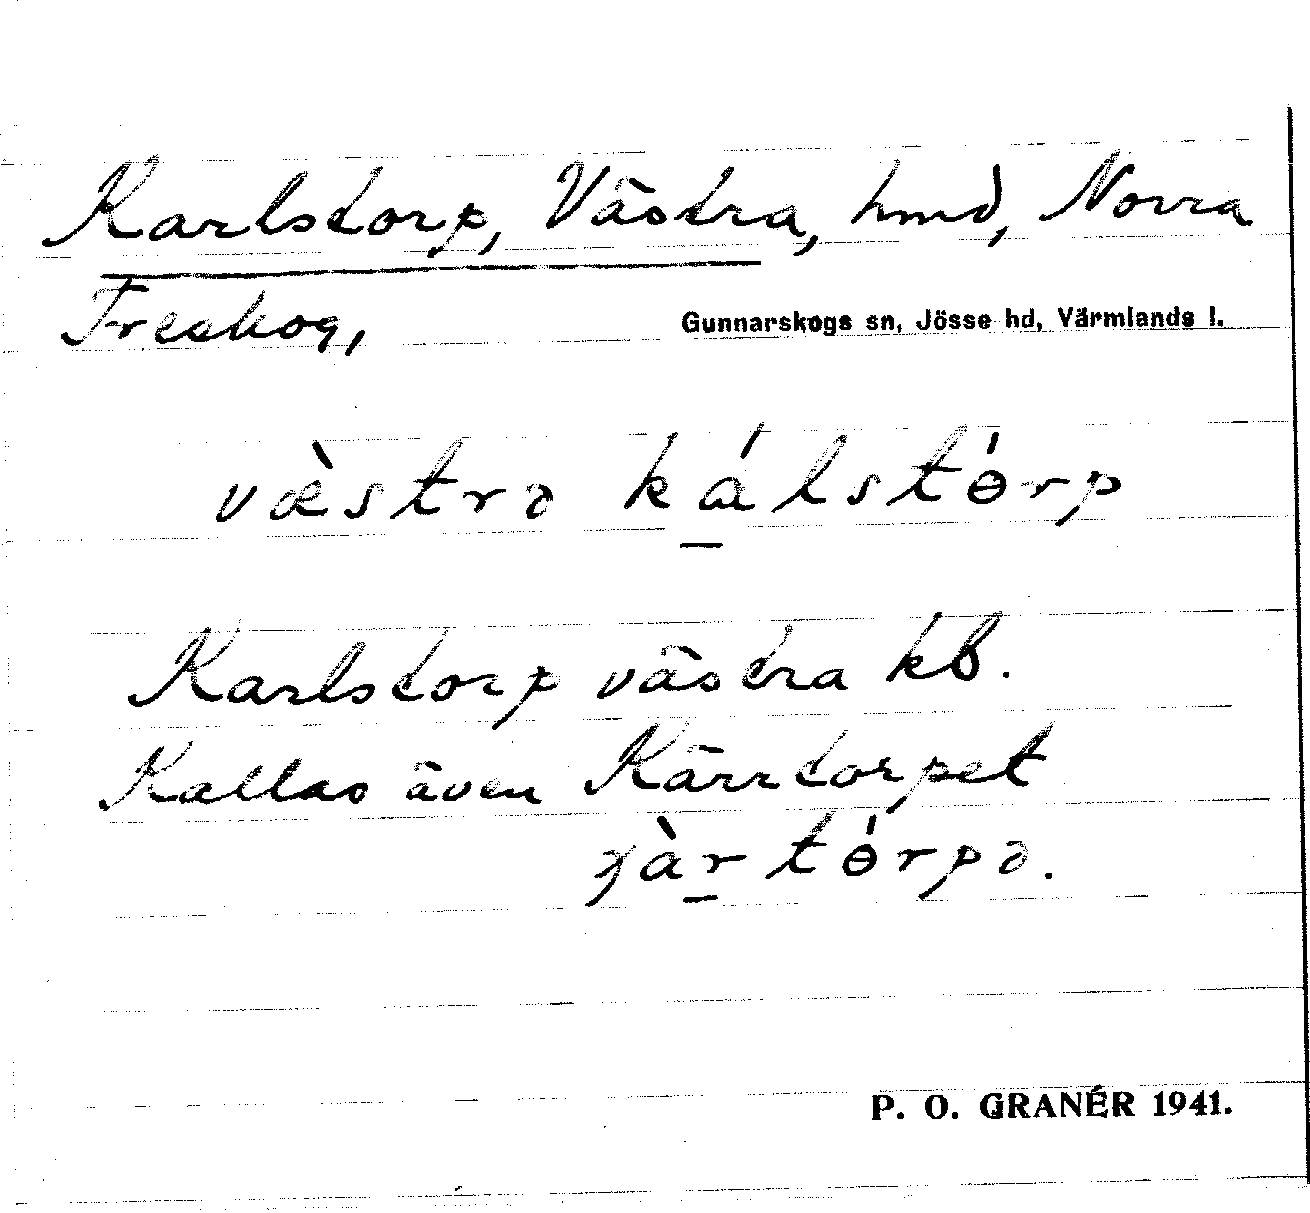 Karlstorp, Västra, hmd, Norra
Treskog,
Gunnarskogs sn, Jösse hd, Värmlands l.
væ̀strə kálstórp
Karlstorp västra kb.
Kallas även Kärrtorpet
P. O. GRANÉR 1941.